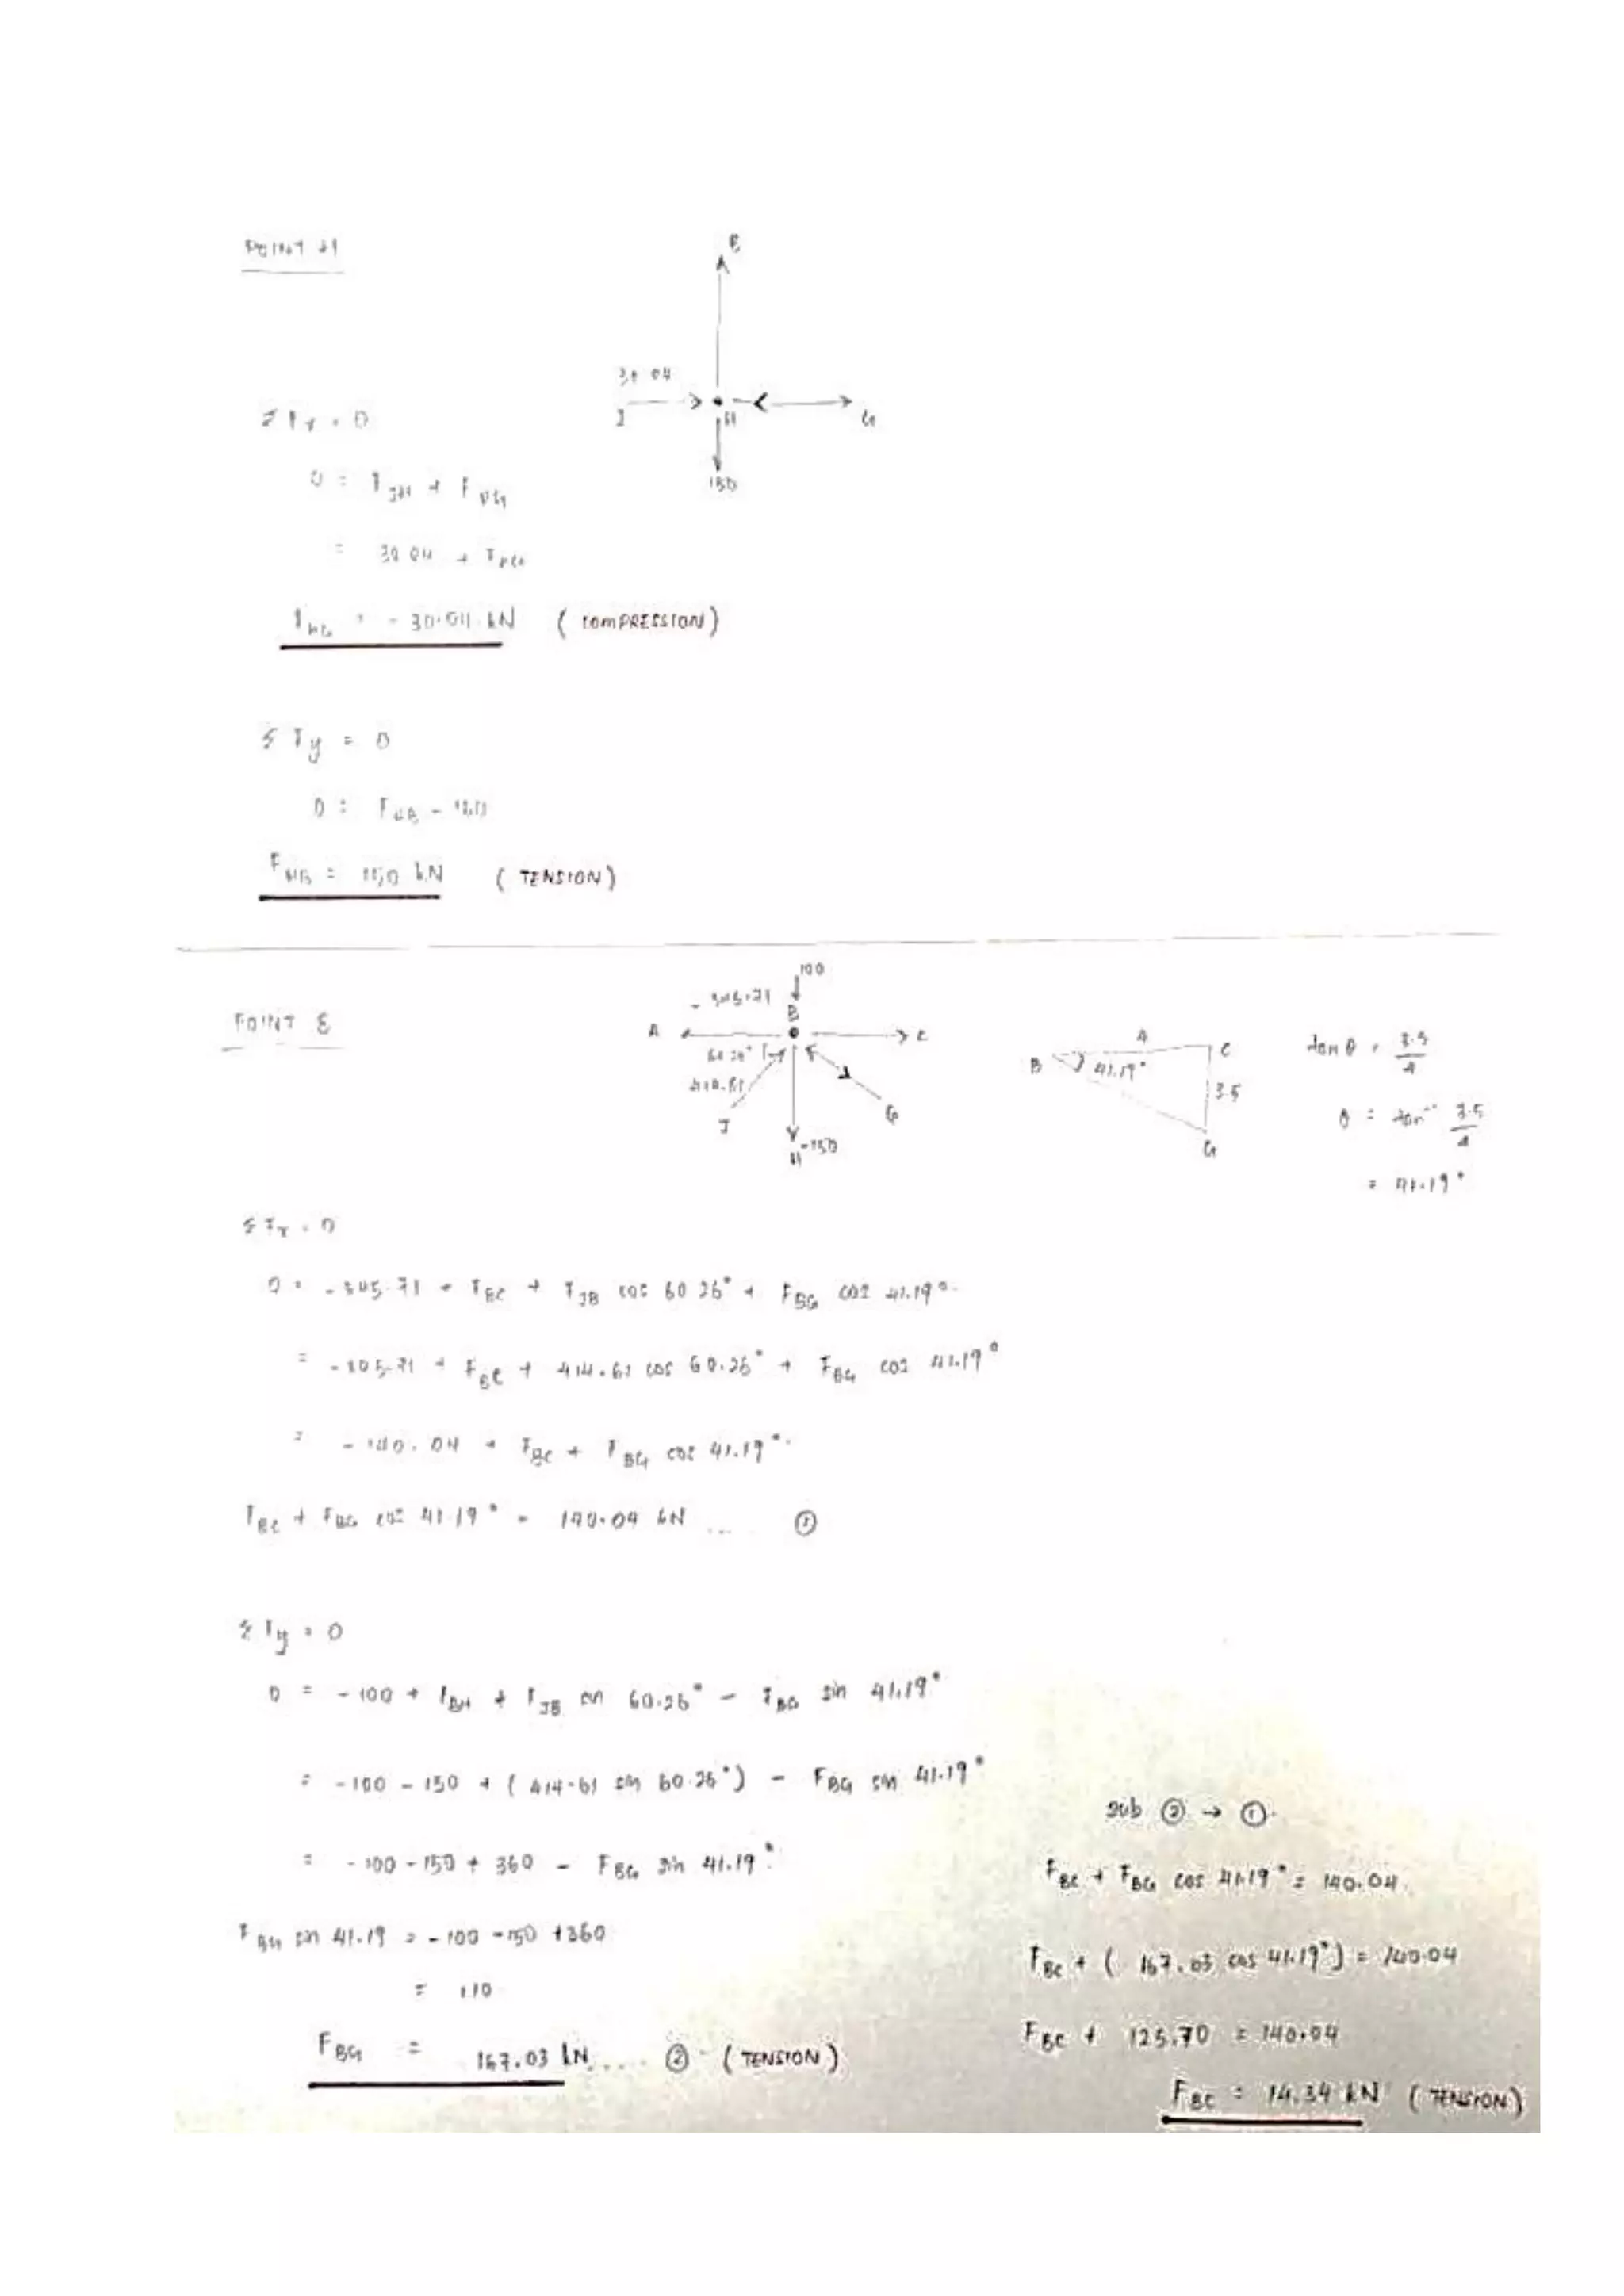 POINT H
B
30.04
J H G
150
ΣFx = 0
0 = FJH + FHG
= 30.04 + FHG
FHG = - 30.04 kN (COMPRESSION)
ΣFy = 0
0 = FHB - 150
FHB = 150 kN (TENSION)
POINT B
100
- 345.71
B
A C
60.26°
414.61
J G
H -150
4
B C
41.19°
3.5
G
tan θ = 3.5/4
θ = tan⁻¹ 3.5/4
= 41.19°
ΣFx = 0
0 = - 345.71 + FBC + FJB cos 60.26° + FBG cos 41.19°
= - 345.71 + FBC + 414.61 cos 60.26° + FBG cos 41.19°
= - 140.04 + FBC + FBG cos 41.19°
FBC + FBG cos 41.19° = 140.04 kN .... ①
ΣFy = 0
0 = - 100 + FBH + FJB sin 60.26° - FBG sin 41.19°
= - 100 - 150 + ( 414.61 sin 60.26° ) - FBG sin 41.19°
= - 100 - 150 + 360 - FBG sin 41.19°
FBG sin 41.19 = - 100 - 150 + 360
= 110
FBG = 167.03 kN .... ② (TENSION)
sub ② → ①
FBC + FBG cos 41.19° = 140.04
FBC + ( 167.03 cos 41.19° ) = 140.04
FBC + 125.70 = 140.04
FBC = 14.34 kN (TENSION)